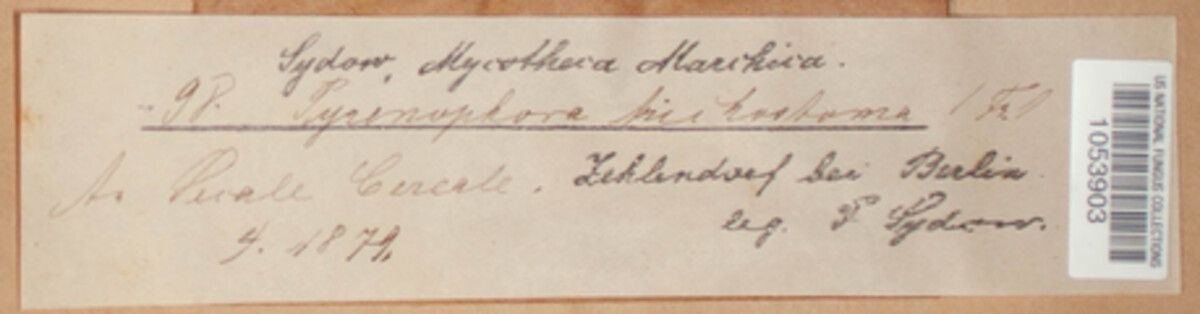 Sydow, Mycotheca Marchica.
98. Pyrenophora trichostoma (Fr)
An Secale Cereale. Zehlendorf bei Berlin
4. 1879. leg. P Sydow.
US NATIONAL FUNGUS COLLECTIONS
1053903